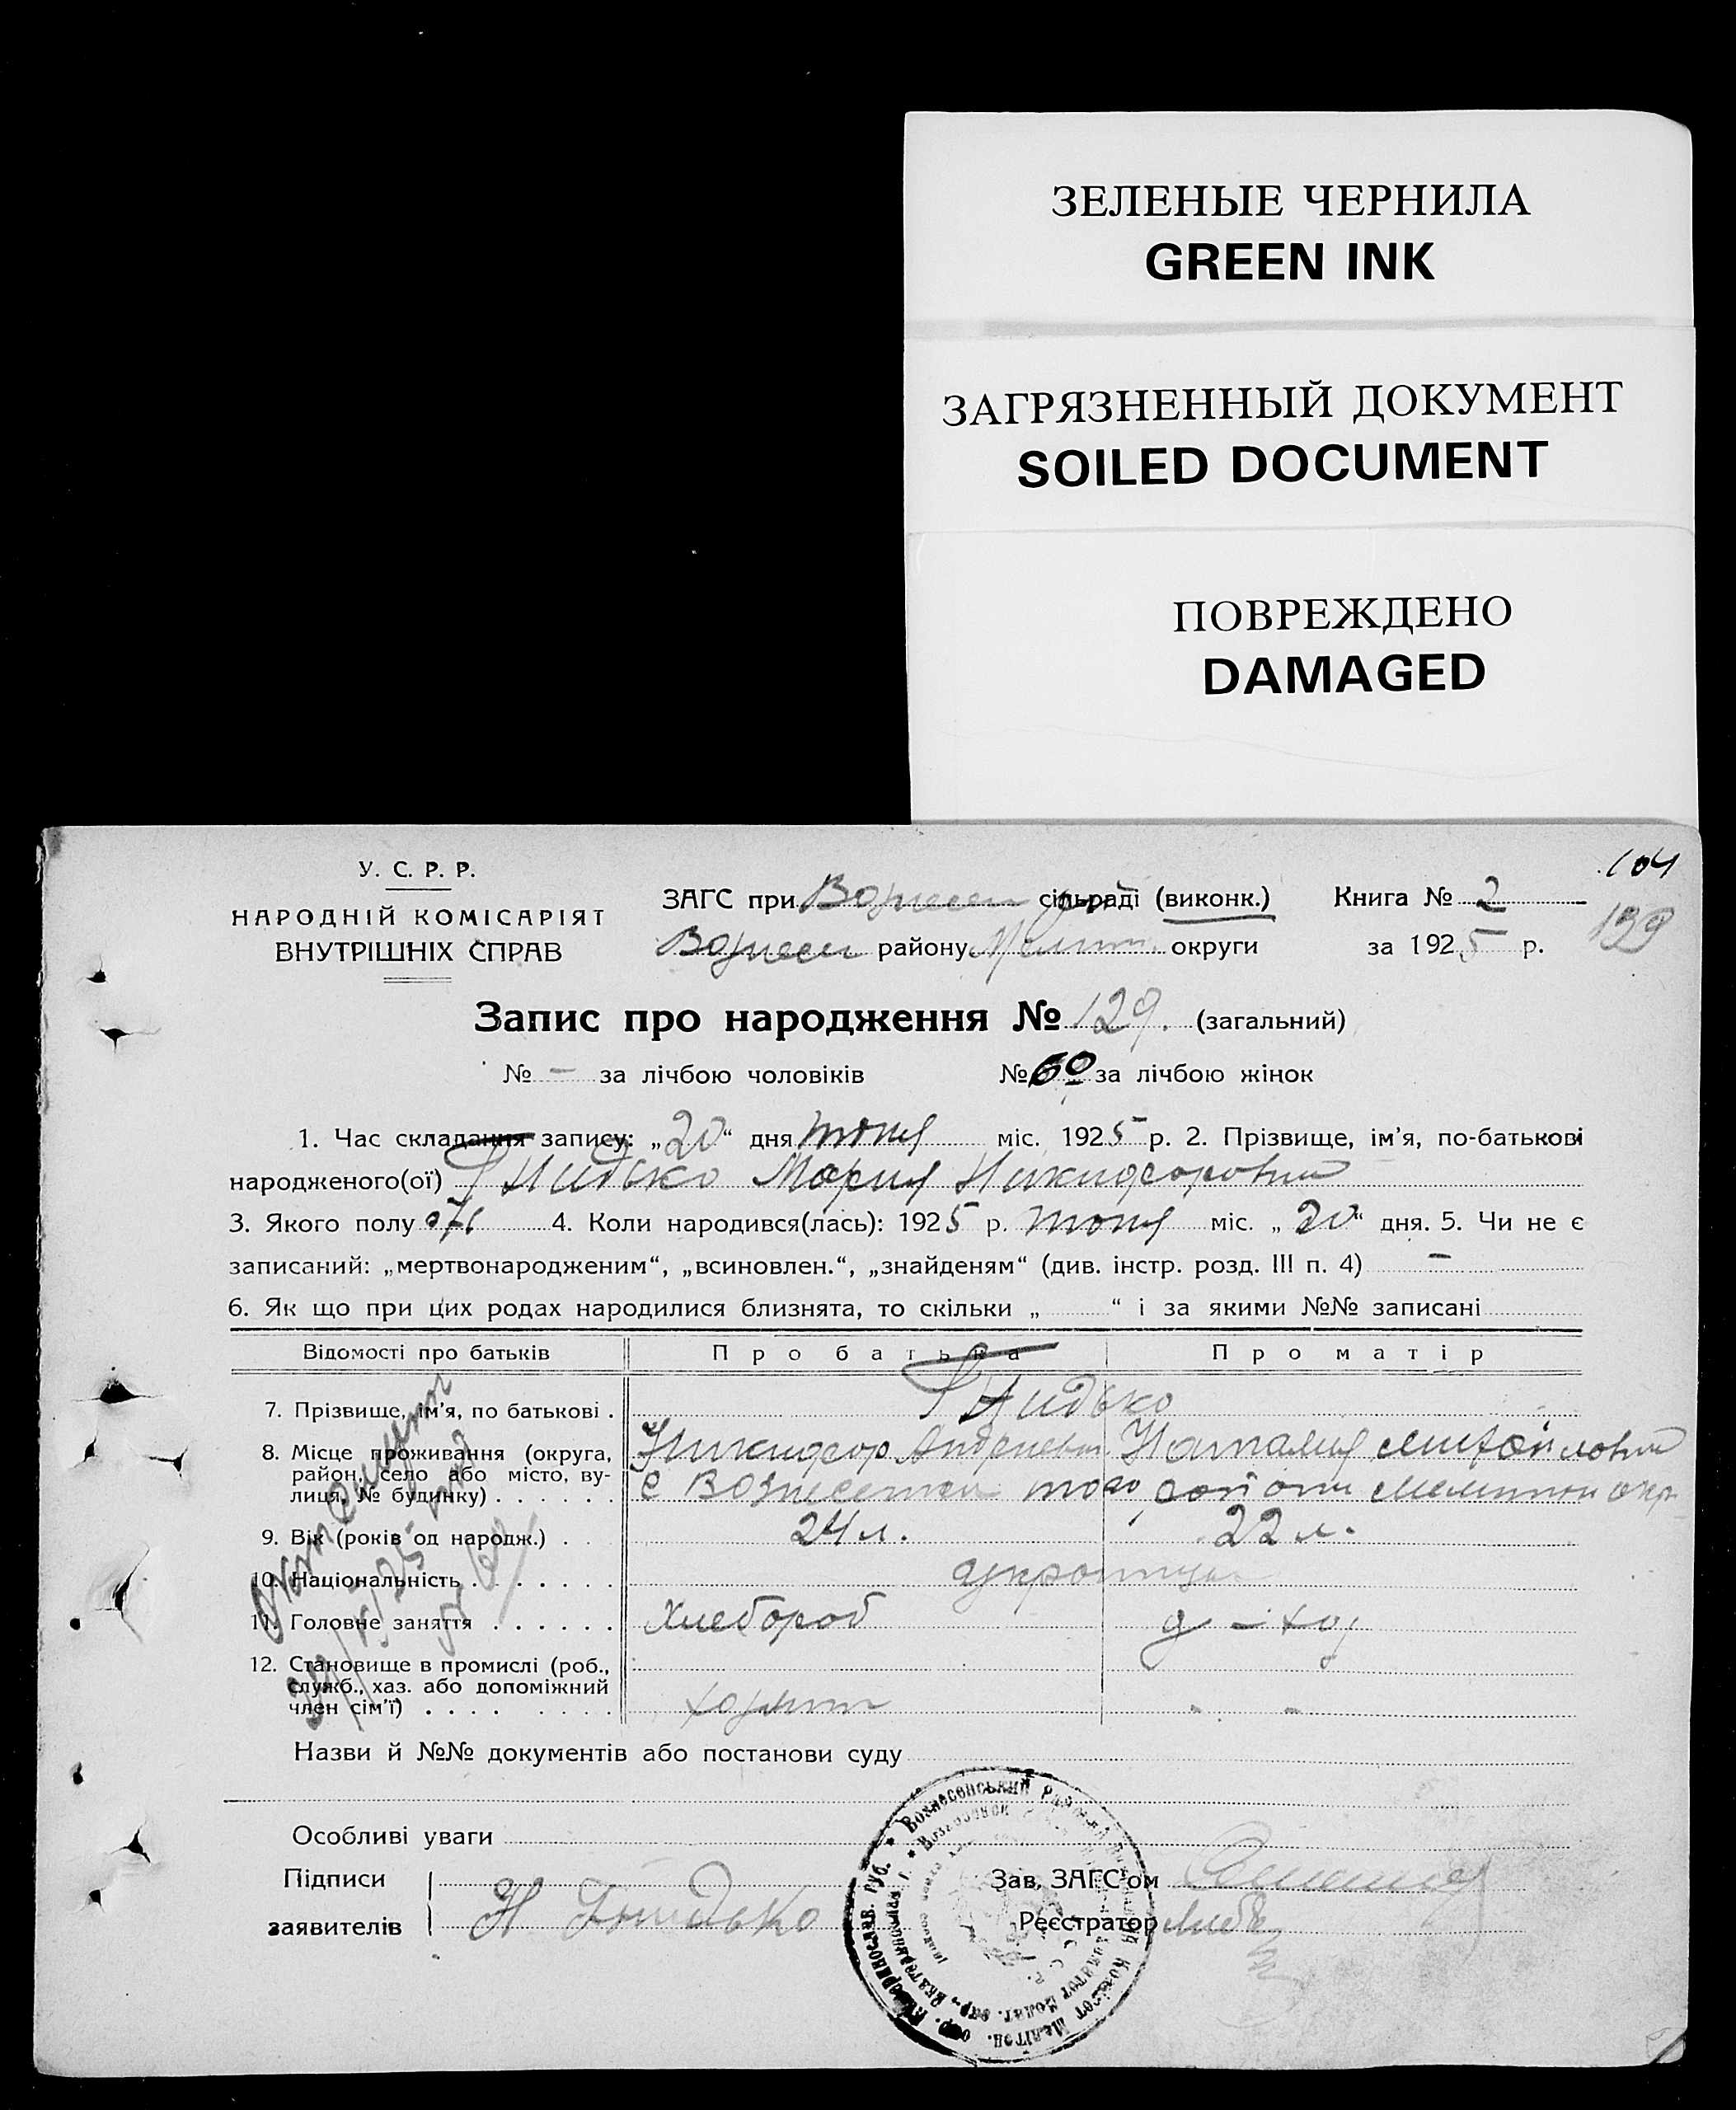 ЗЕЛЕНЫЕ ЧЕРНИЛА
GREEN INK
ЗАГРЯЗНЕННЫЙ ДОКУМЕНТ
SOILED DOCUMENT
ПОВРЕЖДЕНО
DAMAGED
104
У. С. Р. Р.
НАРОДНІЙ КОМІСАРІЯТ
ВНУТРІШНІХ СПРАВ
ЗАГС при Вознесен сільраді (виконк.) Книга № 2
Вознесен району Мелит. округи за 1925 р.
129
Запис про народження № 129. (загальний)
№ – за лічбою чоловіків № 60 за лічбою жінок
1. Час складання запису: „20“ дня июня міс. 1925 р. 2. Прізвище, ім’я, по-батькові
народженого(ої) Гнидько Мария Никифоровна
3. Якого полу ж 4. Коли народився(лась): 1925 р. июня міс. „20“ дня. 5. Чи не є
записаний: „мертвонародженим“, „всиновлен.“, „знайденям“ (див. інстр. розд. III п. 4) –
6. Як що при цих родах народилися близнята, то скільки „ “ і за якими №№ записані
Відомості про батьків Про батька Про матір
7. Прізвище, ім’я, по батькові . Гнидько
Никифор Андреевич Наталия Михайловна
8. Місце проживання (округа, район, село або місто, вулиця, № будинку) . . . . . . с Вознесенка того района Мелитоп окр
9. Вік (років од народж.) . . 24 л. 22 л.
10. Національність . . . . . . . украинцы
11. Головне заняття . . . . . . хлебороб д – хоз
12. Становище в промислі (роб.,
служб., хаз. або допоміжний
член сім’ї) . . . . . . . . хозяин - –
Назви й №№ документів або постанови суду
Особливі уваги
Підписи
заявителів Н Гнидько
Зав. ЗАГС’ом
Реєстратор
Вознесенський